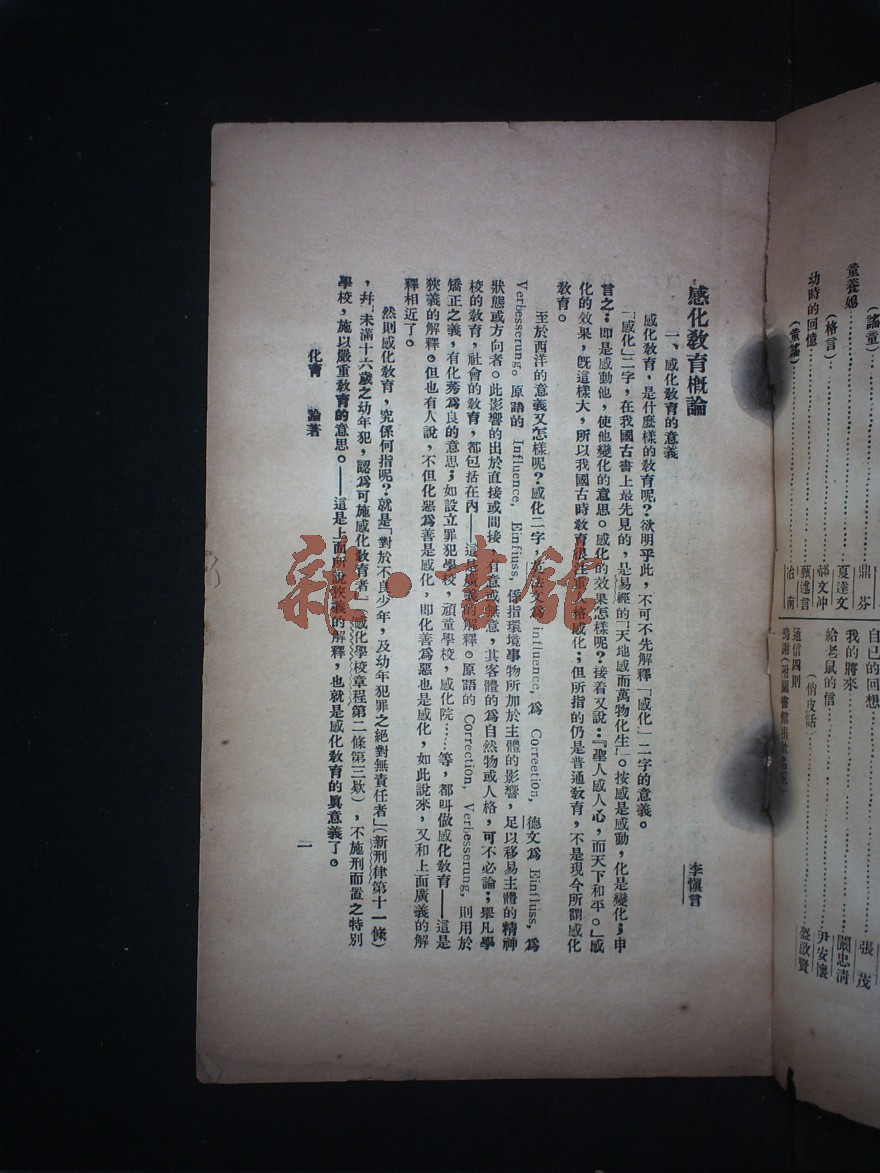 (謠童)……鼎芬
童養媳……夏達文
(格言)……郝文冲
幼時的回憶……甄述言
(童謠)……治南
自已的回想……張茂
我的將來……闞忠清
給老鼠的信……尹安懷
(俏皮話)……啟賢
通信四則
鳴謝(附圖書館
感化教育概論
李愼言
一、感化教育的意義
感化教育，是什麽樣的教育呢？欲明乎此，不可不先解釋「感化」二字的意義。
「感化」二字，在我國古書上最先見的，是易經的「天地感而萬物化生」。按感是感動，化是變化；申
言之：即是感動他，使他變化的意思。感化的效果怎樣呢？接着又說：『聖人感人心，而天下和平。」感
化的效果，旣這樣大，所以我國古時教育很注重人格感化；但所指的仍是普通教育，不是現今所謂感化
教育。
至於西洋的意義又怎樣呢？感化二字，英法文爲 influence，爲 Correetion，德文爲 Einfluiss，爲
Verbesserung。原語的 Influence, Einfiuss, 係指環境事物所加於主體的影響，足以移易主體的精神
狀態或方向者。此影響的出於直接或間接，有意或無意，其客體的爲自然物或人格，可不必論；舉凡學
校的教育，社會的教育，都包括在內——這是廣義的解釋。原語的 Correction, Verbesserung, 則用於
矯正之義，有化莠爲良的意思；如設立罪犯學校，頑童學校，感化院……等，都叫做感化教育——這是
狹義的解釋。但也有人說，不但化惡爲善是感化，即化善爲惡也是感化，如此說來，又和上面廣義的解
釋相近了。
然則感化教育，究係何指呢？就是「對於不良少年，及幼年犯罪之絕對無責任者」（新刑律第十一條）
，幷「未滿十六歲之幼年犯，認爲可施感化教育者」（感化學校章程第二條第三欵），不施刑而置之特別
學校，施以嚴重教育的意思。——這是上面所說狹義的解釋，也就是感化教育的眞意義了。
化育　論著
一
雜·書館